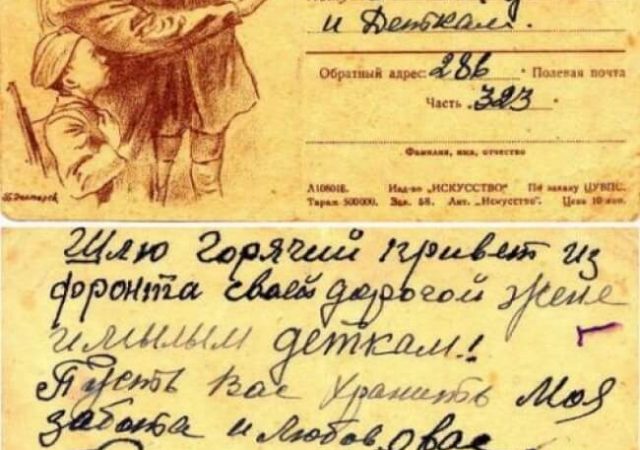 и Деткам.
Обратный адрес: 28б • Полевая почта
Часть 323
Фамилия, имя, отчество
Изд-во „ИСКУССТВО" По заказу ЦУВПС.
Тираж 500000. Зак. 58. Лит. „Искусство". Цена 10 коп.
Шлю горячий привет из
фронта своей дорогой жене
и милым деткам!
Пусть Вас хранить Моя
забота и любов о вас